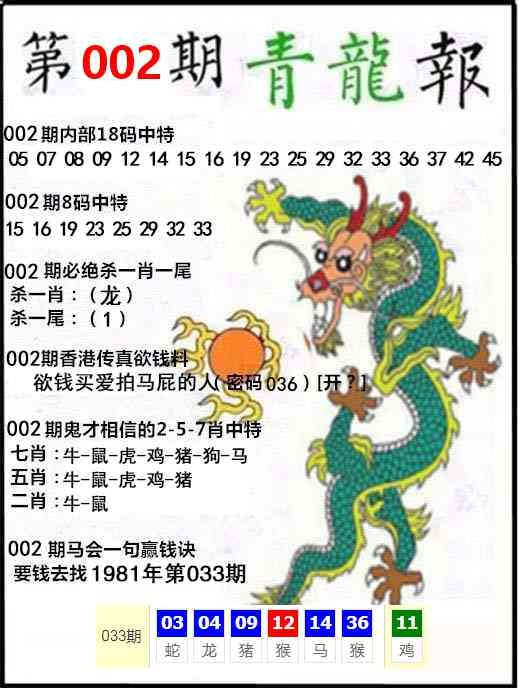 第002期青龍報
002期内部18码中特
05 07 08 09 12 14 15 16 19 23 25 29 32 33 36 37 42 45
002期8码中特
15 16 19 23 25 29 32 33
002 期必绝杀一肖一尾
杀一肖：（龙）
杀一尾：（1）
002期香港传真欲钱料
欲钱买爱拍马屁的人(密码036)[开?]
002期鬼才相信的2-5-7肖中特
七肖：牛-鼠-虎-鸡-猪-狗-马
五肖：牛-鼠-虎-鸡-猪
二肖：牛-鼠
002 期马会一句赢钱诀
要钱去找1981年第033期
033期 03 04 09 12 14 36 11
蛇 龙 猪 猴 马 猴 鸡